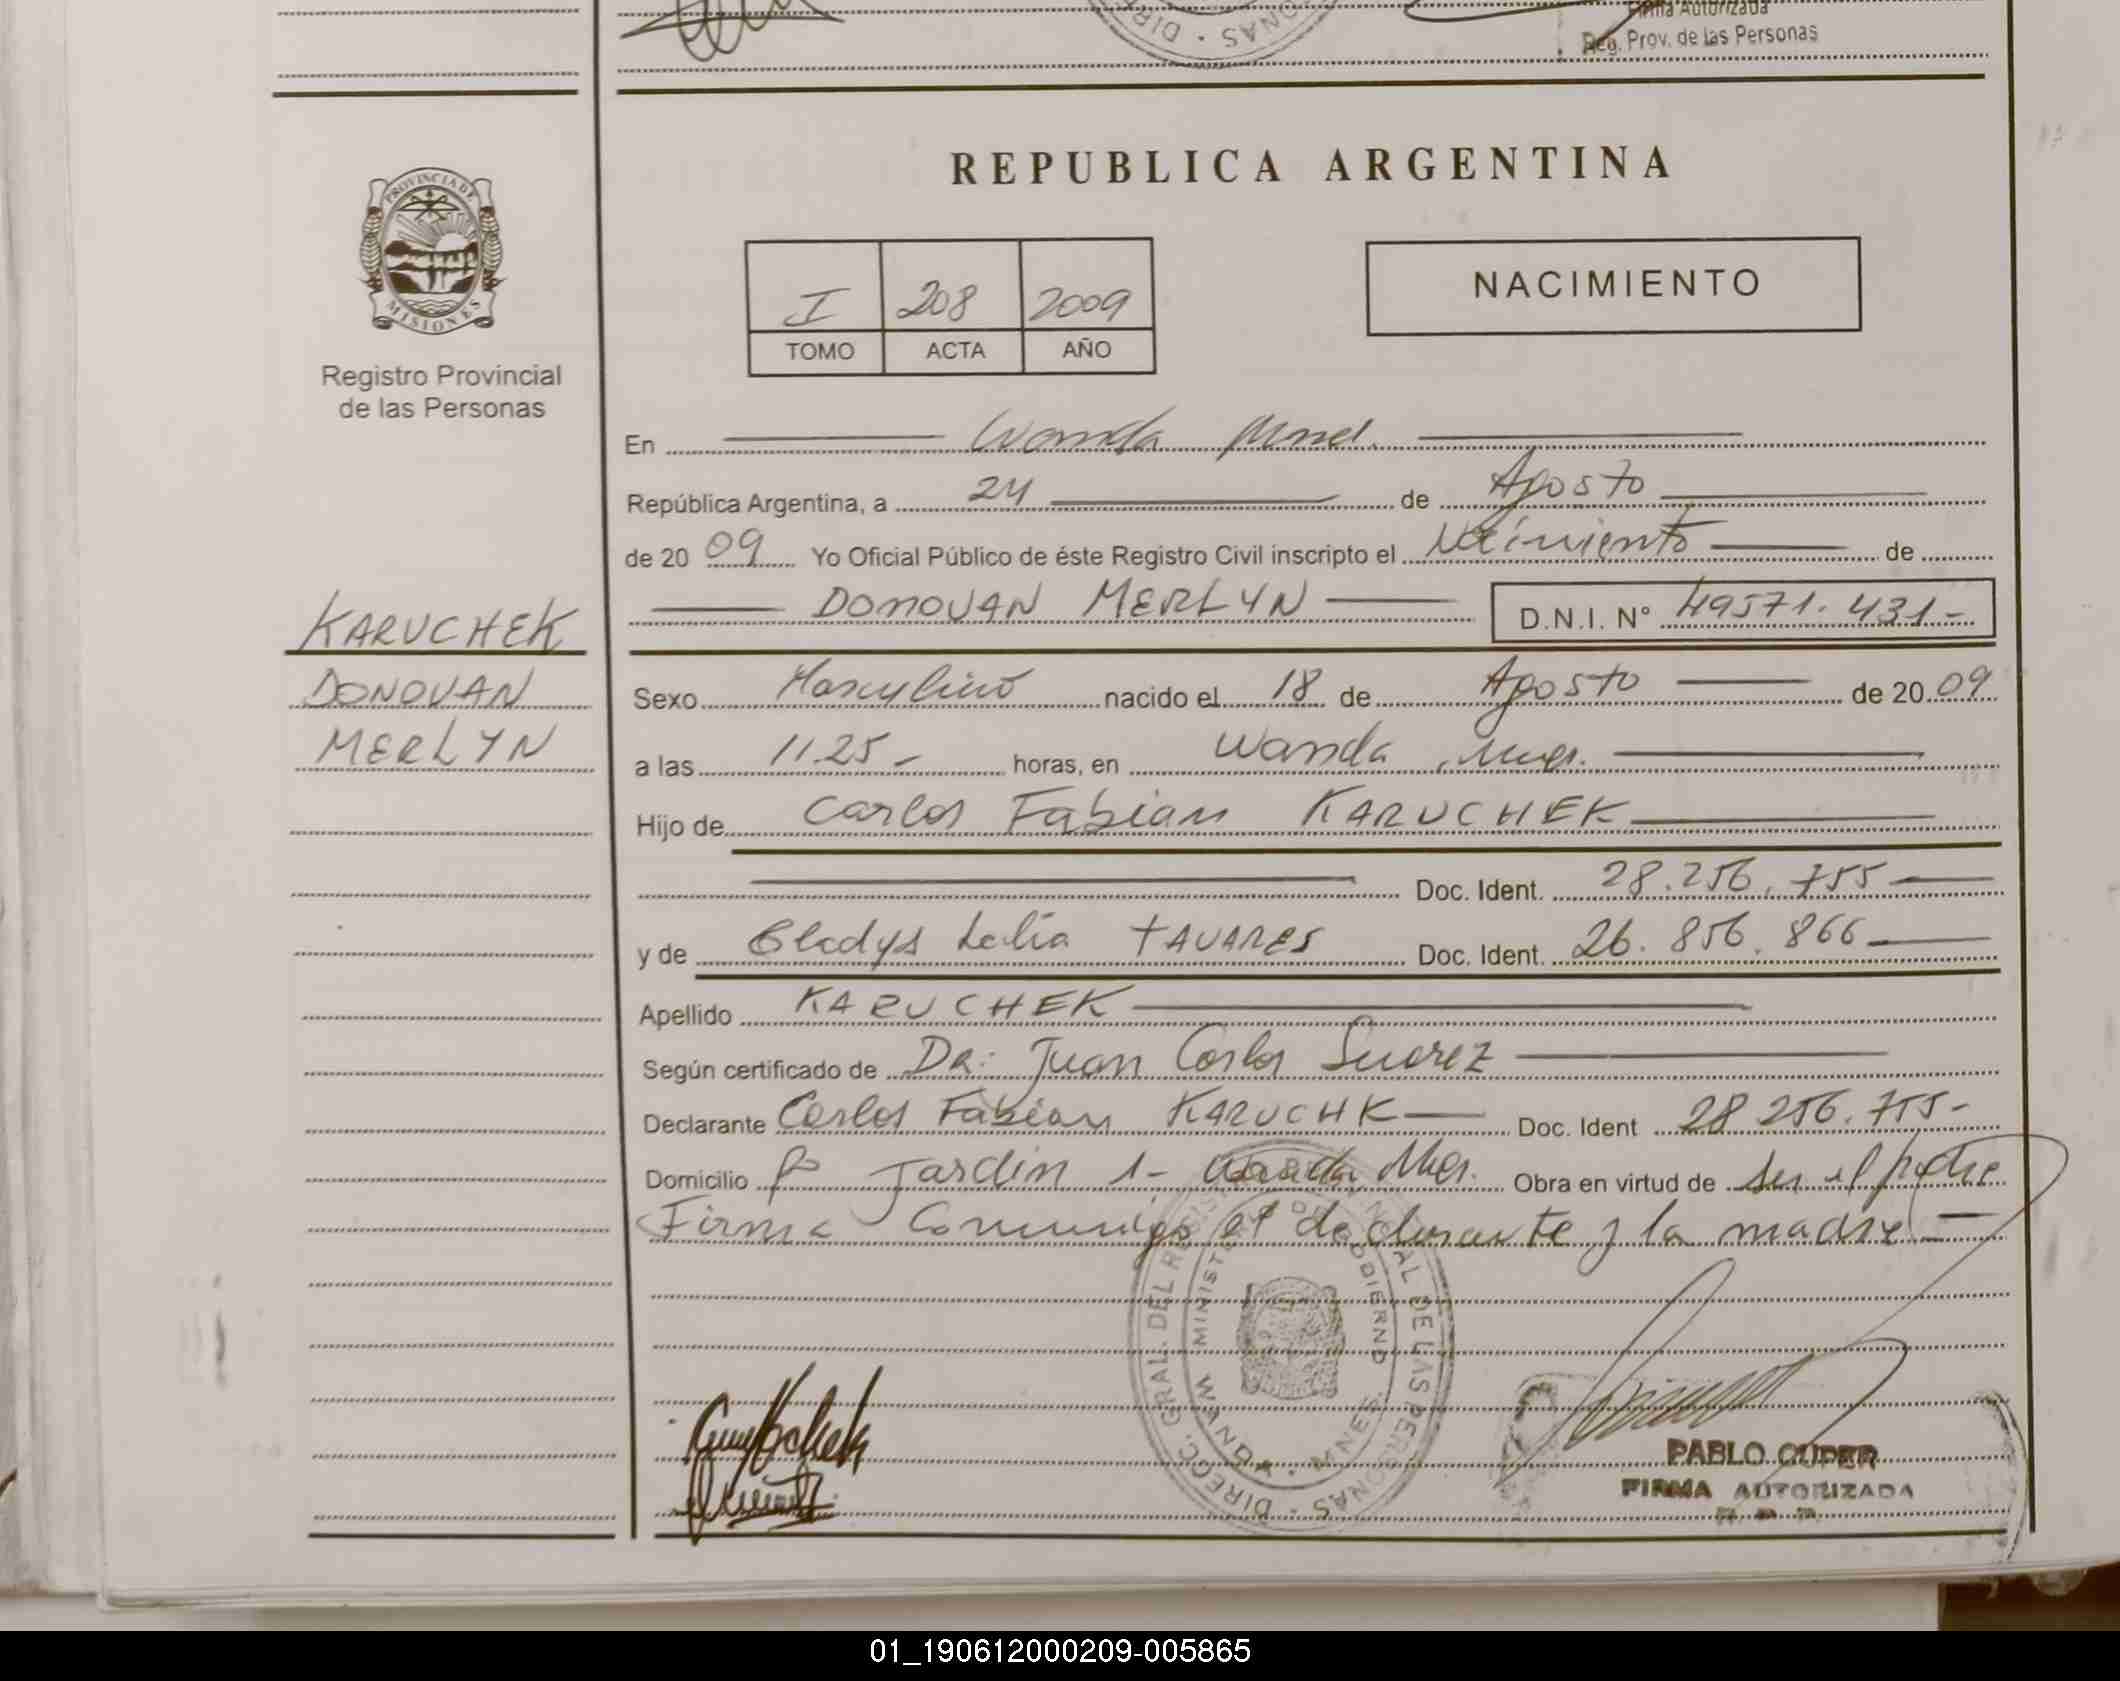 Firma Autorizada
Reg. Prov. de las Personas
DIRE
ONAS
REPUBLICA ARGENTINA
PROVINCIA DE
MISIONES
Registro Provincial
de las Personas
I 208 2009
TOMO ACTA AÑO
NACIMIENTO
En Wanda
República Argentina, a 24 de Agosto
de 20 09 Yo Oficial Público de éste Registro Civil inscripto el Nacimiento de
DONOVAN MERLYN D.N.I. N° 49571.431-
KARUCHEK
DONOVAN
MERLYN
Sexo Masculino nacido el 18 de Agosto de 20 09
a las 11.25- horas, en Wanda, Mnes.
Hijo de Carlos Fabian KARUCHEK
Doc. Ident. 28.256.755
y de Gladys Lelia TAVARES Doc. Ident. 26.856.866
Apellido KARUCHEK
Según certificado de DR: Juan Carlos Suarez
Declarante Carlos Fabian KARUCHK Doc. Ident 28 256.755-
Domicilio Jardin 1- Wanda Mnes. Obra en virtud de ser el padre
Firma Conmigo el declarante y la madre
DIRECC. GRAL. DEL REGISTRO AL DE LAS PERSONAS
WANDA MNES.
PABLO CUPER
FIRMA AUTORIZADA
01_190612000209-005865